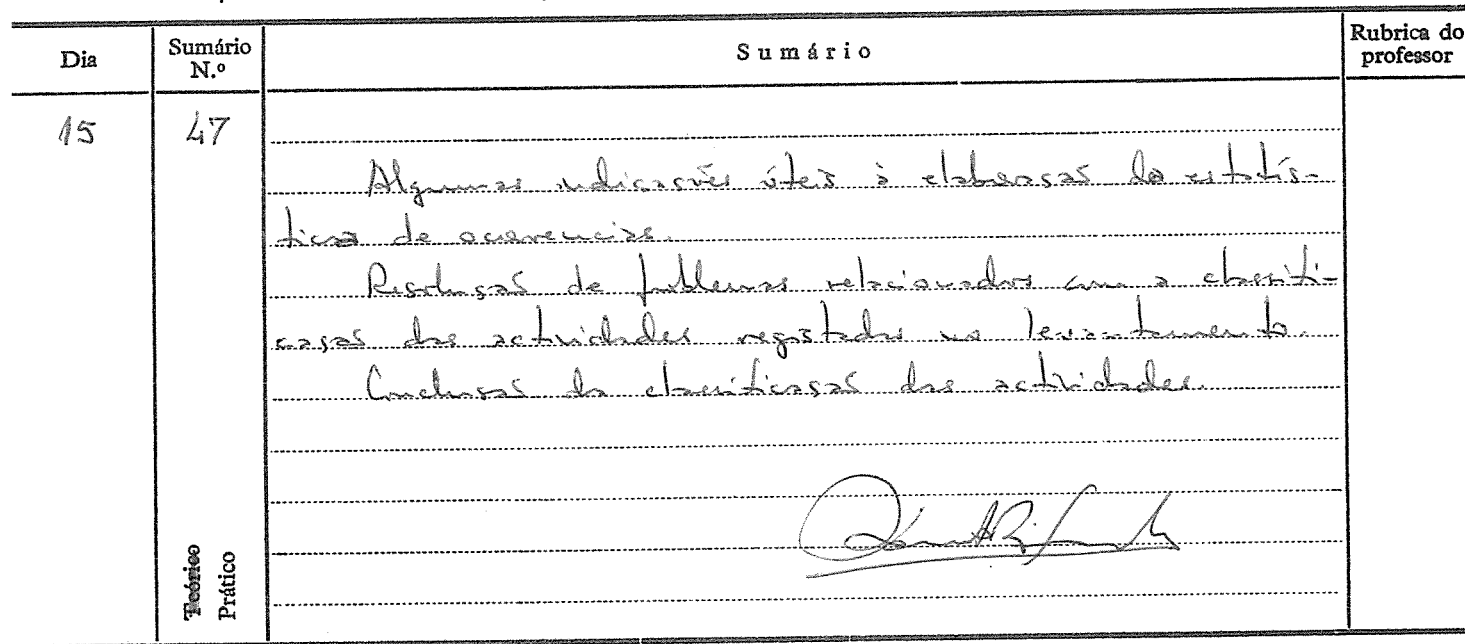 Dia
Sumário
N.º
Sumário
Rubrica do
professor
15
47
Algumas indicações úteis à elaboração da estatís-
tica de ocorrencias.
Resolução de problemas relacionados com a classifi-
cação das actividades registadas no levantamento.
Conclusão da classificação das actividades.
Teórico
Prático